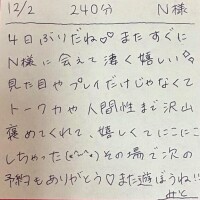 12/2 240分 N様
4日ぶりだね♡♡ またすぐに
N様に会えて凄く嬉しい✧
見た目やプレイだけじゃなくて
トーク力や人間性まで沢山
褒めてくれて、嬉しくてにこにこ
しちゃった(*^^*) その場で次の
予約もありがとう♡また遊ぼうね!!